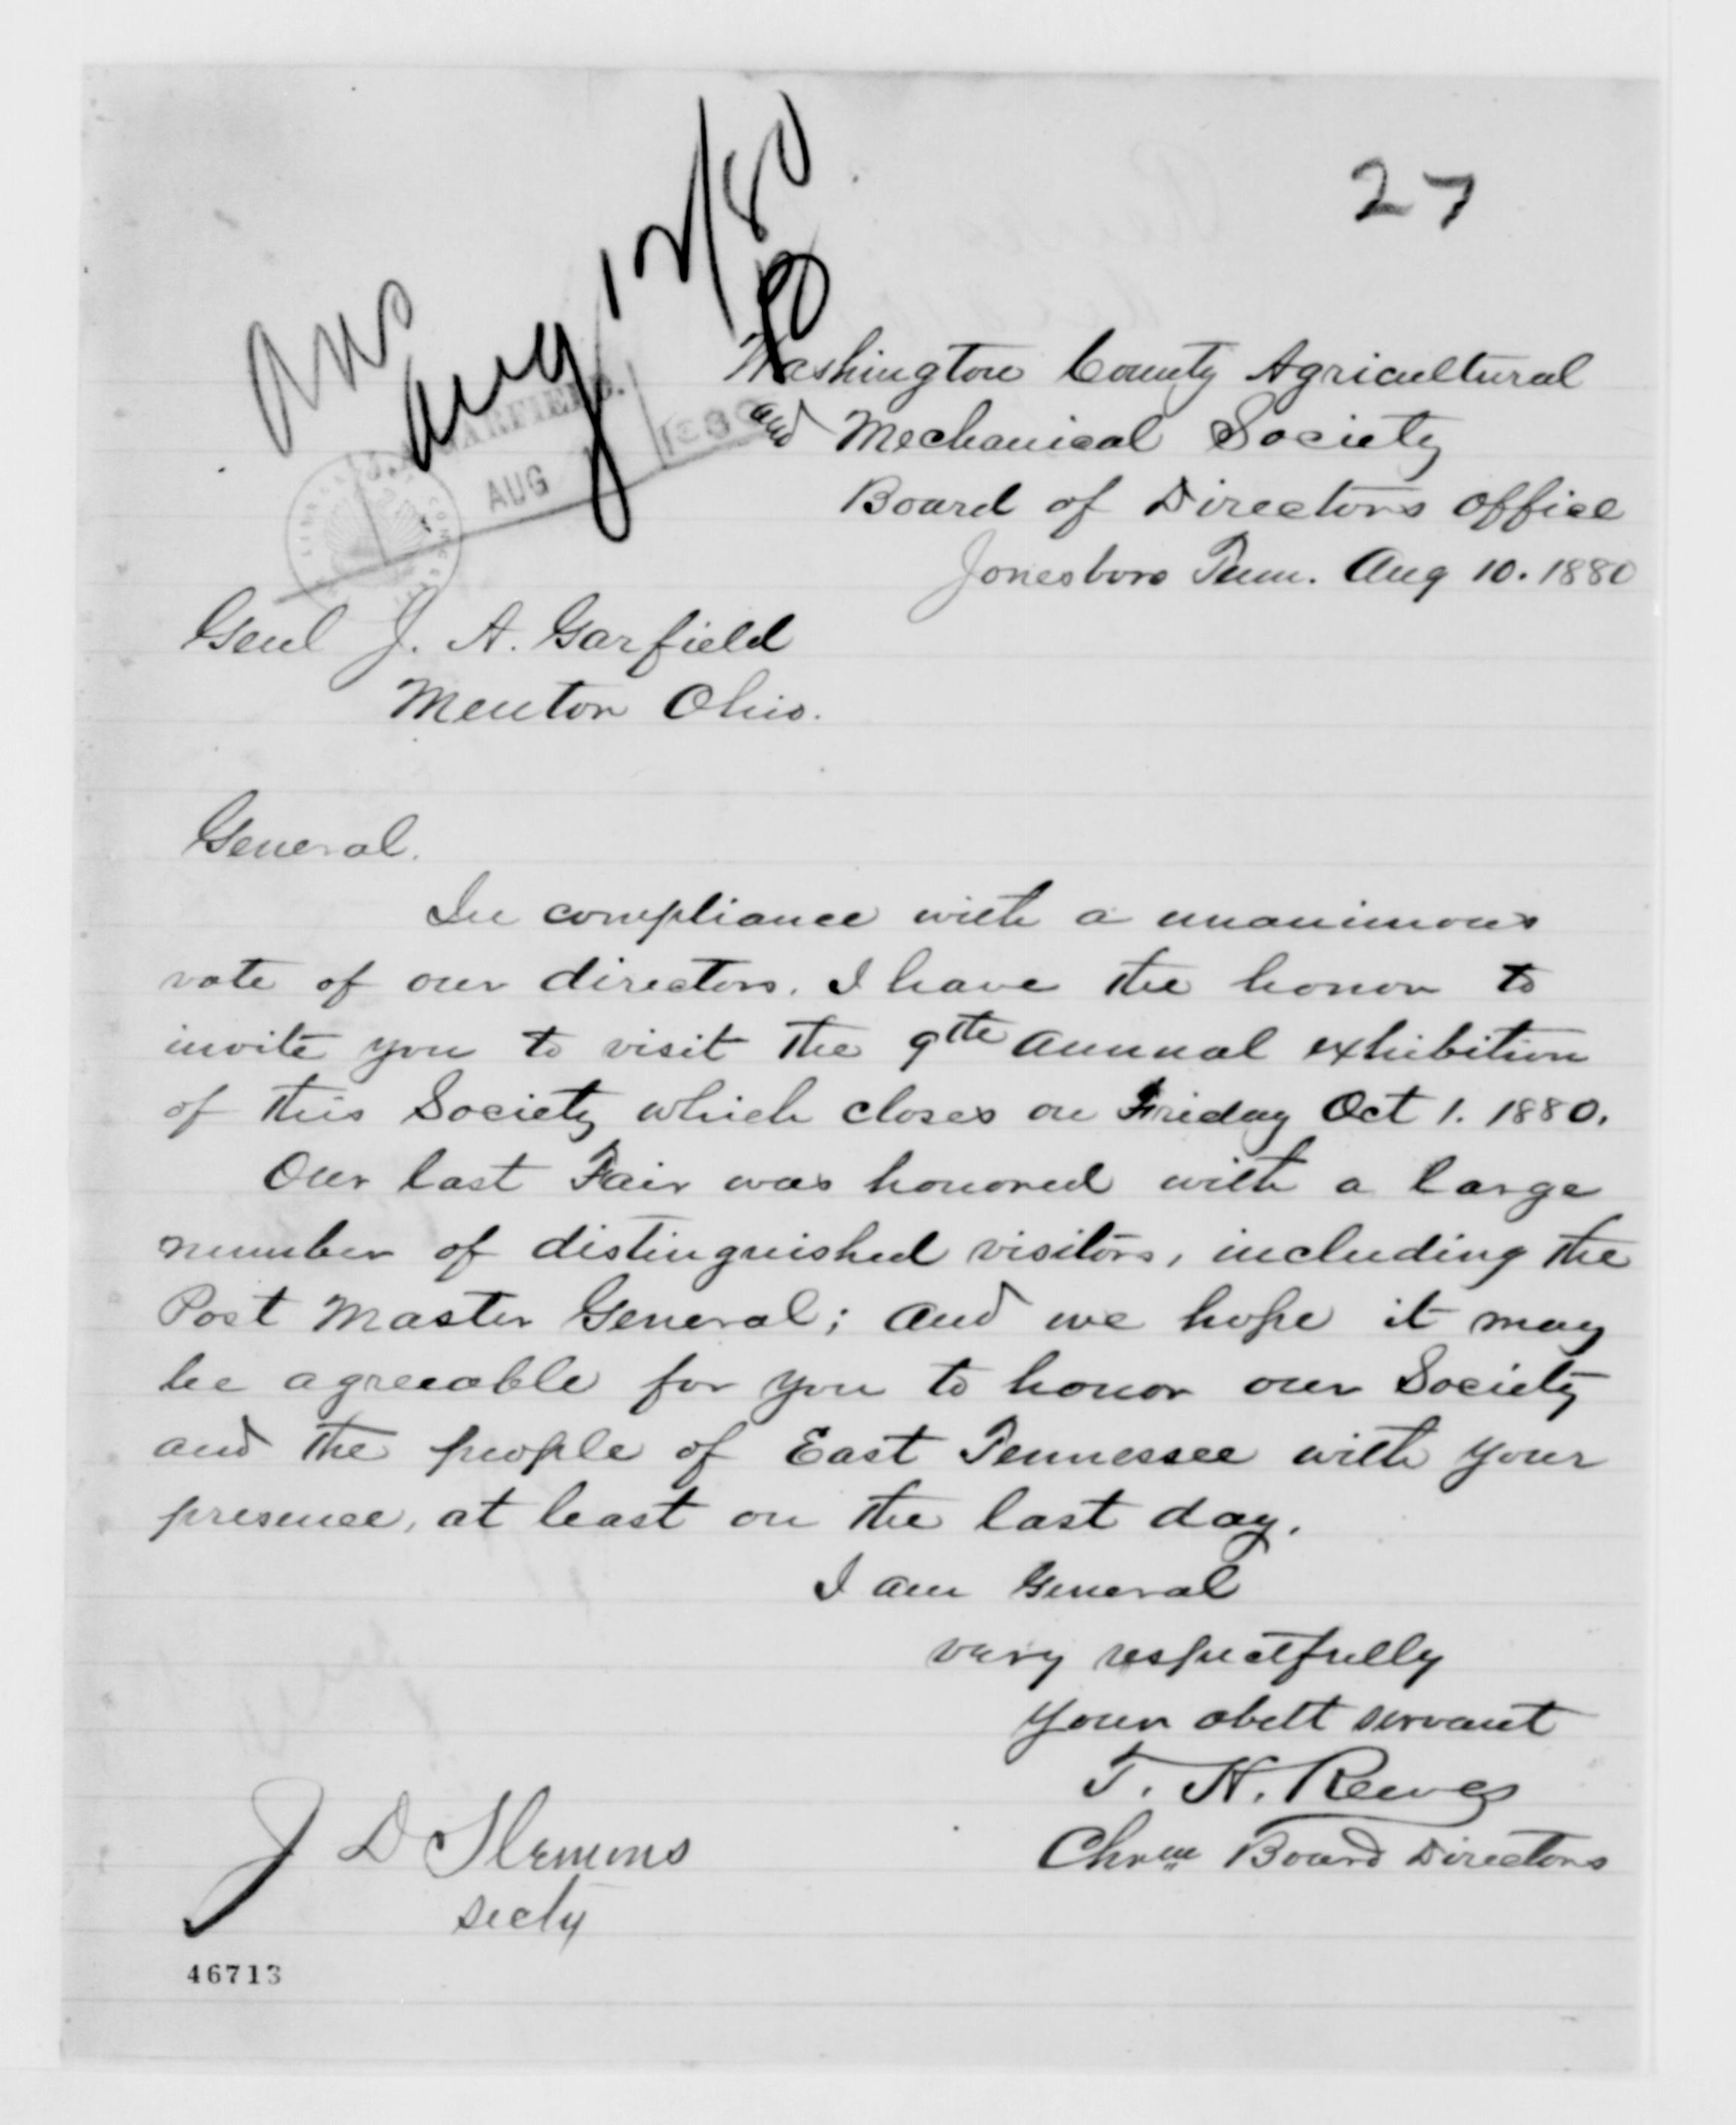 27
Ans
Aug 12/80
J. A. GARFIELD.
AUG
1880
Washington County Agricultural
and Mechanical Society
Board of Directors office
Jonesboro Tenn. Aug 10. 1880
Genl J. A. Garfield
Mentor Ohio.
General.
In compliance with a unanimous
vote of our directors. I have the honor to
invite you to visit the 9th annual exhibition
of this Society which closes on Friday Oct 1. 1880.
Our last Fair was honored with a large
number of distinguished visitors, including the
Post Master General; and we hope it may
be agreeable for you to honor our Society
and the people of East Tennessee with your
presence, at least on the last day.
I am General
very respectfully
your obdt servant
T. H. Reeves
Chrm Board Directors
J D Slemons
Secty
46713